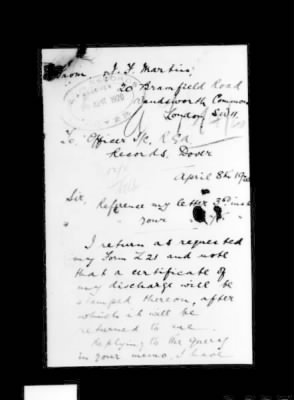 From J. F. Martin,
20 Bramfield Road
Wandsworth Common
London SW11.
To Officer I/c. R G A
Records, Dover
April 8th 1920
Sir,
Reference my letter 3rd inst
" your
I return as requested
my Form Z21 and note
that a certificate of
my discharge will be
stamped thereon, after
which it will be
returned to me.
Replying to the query
in your memo, I have